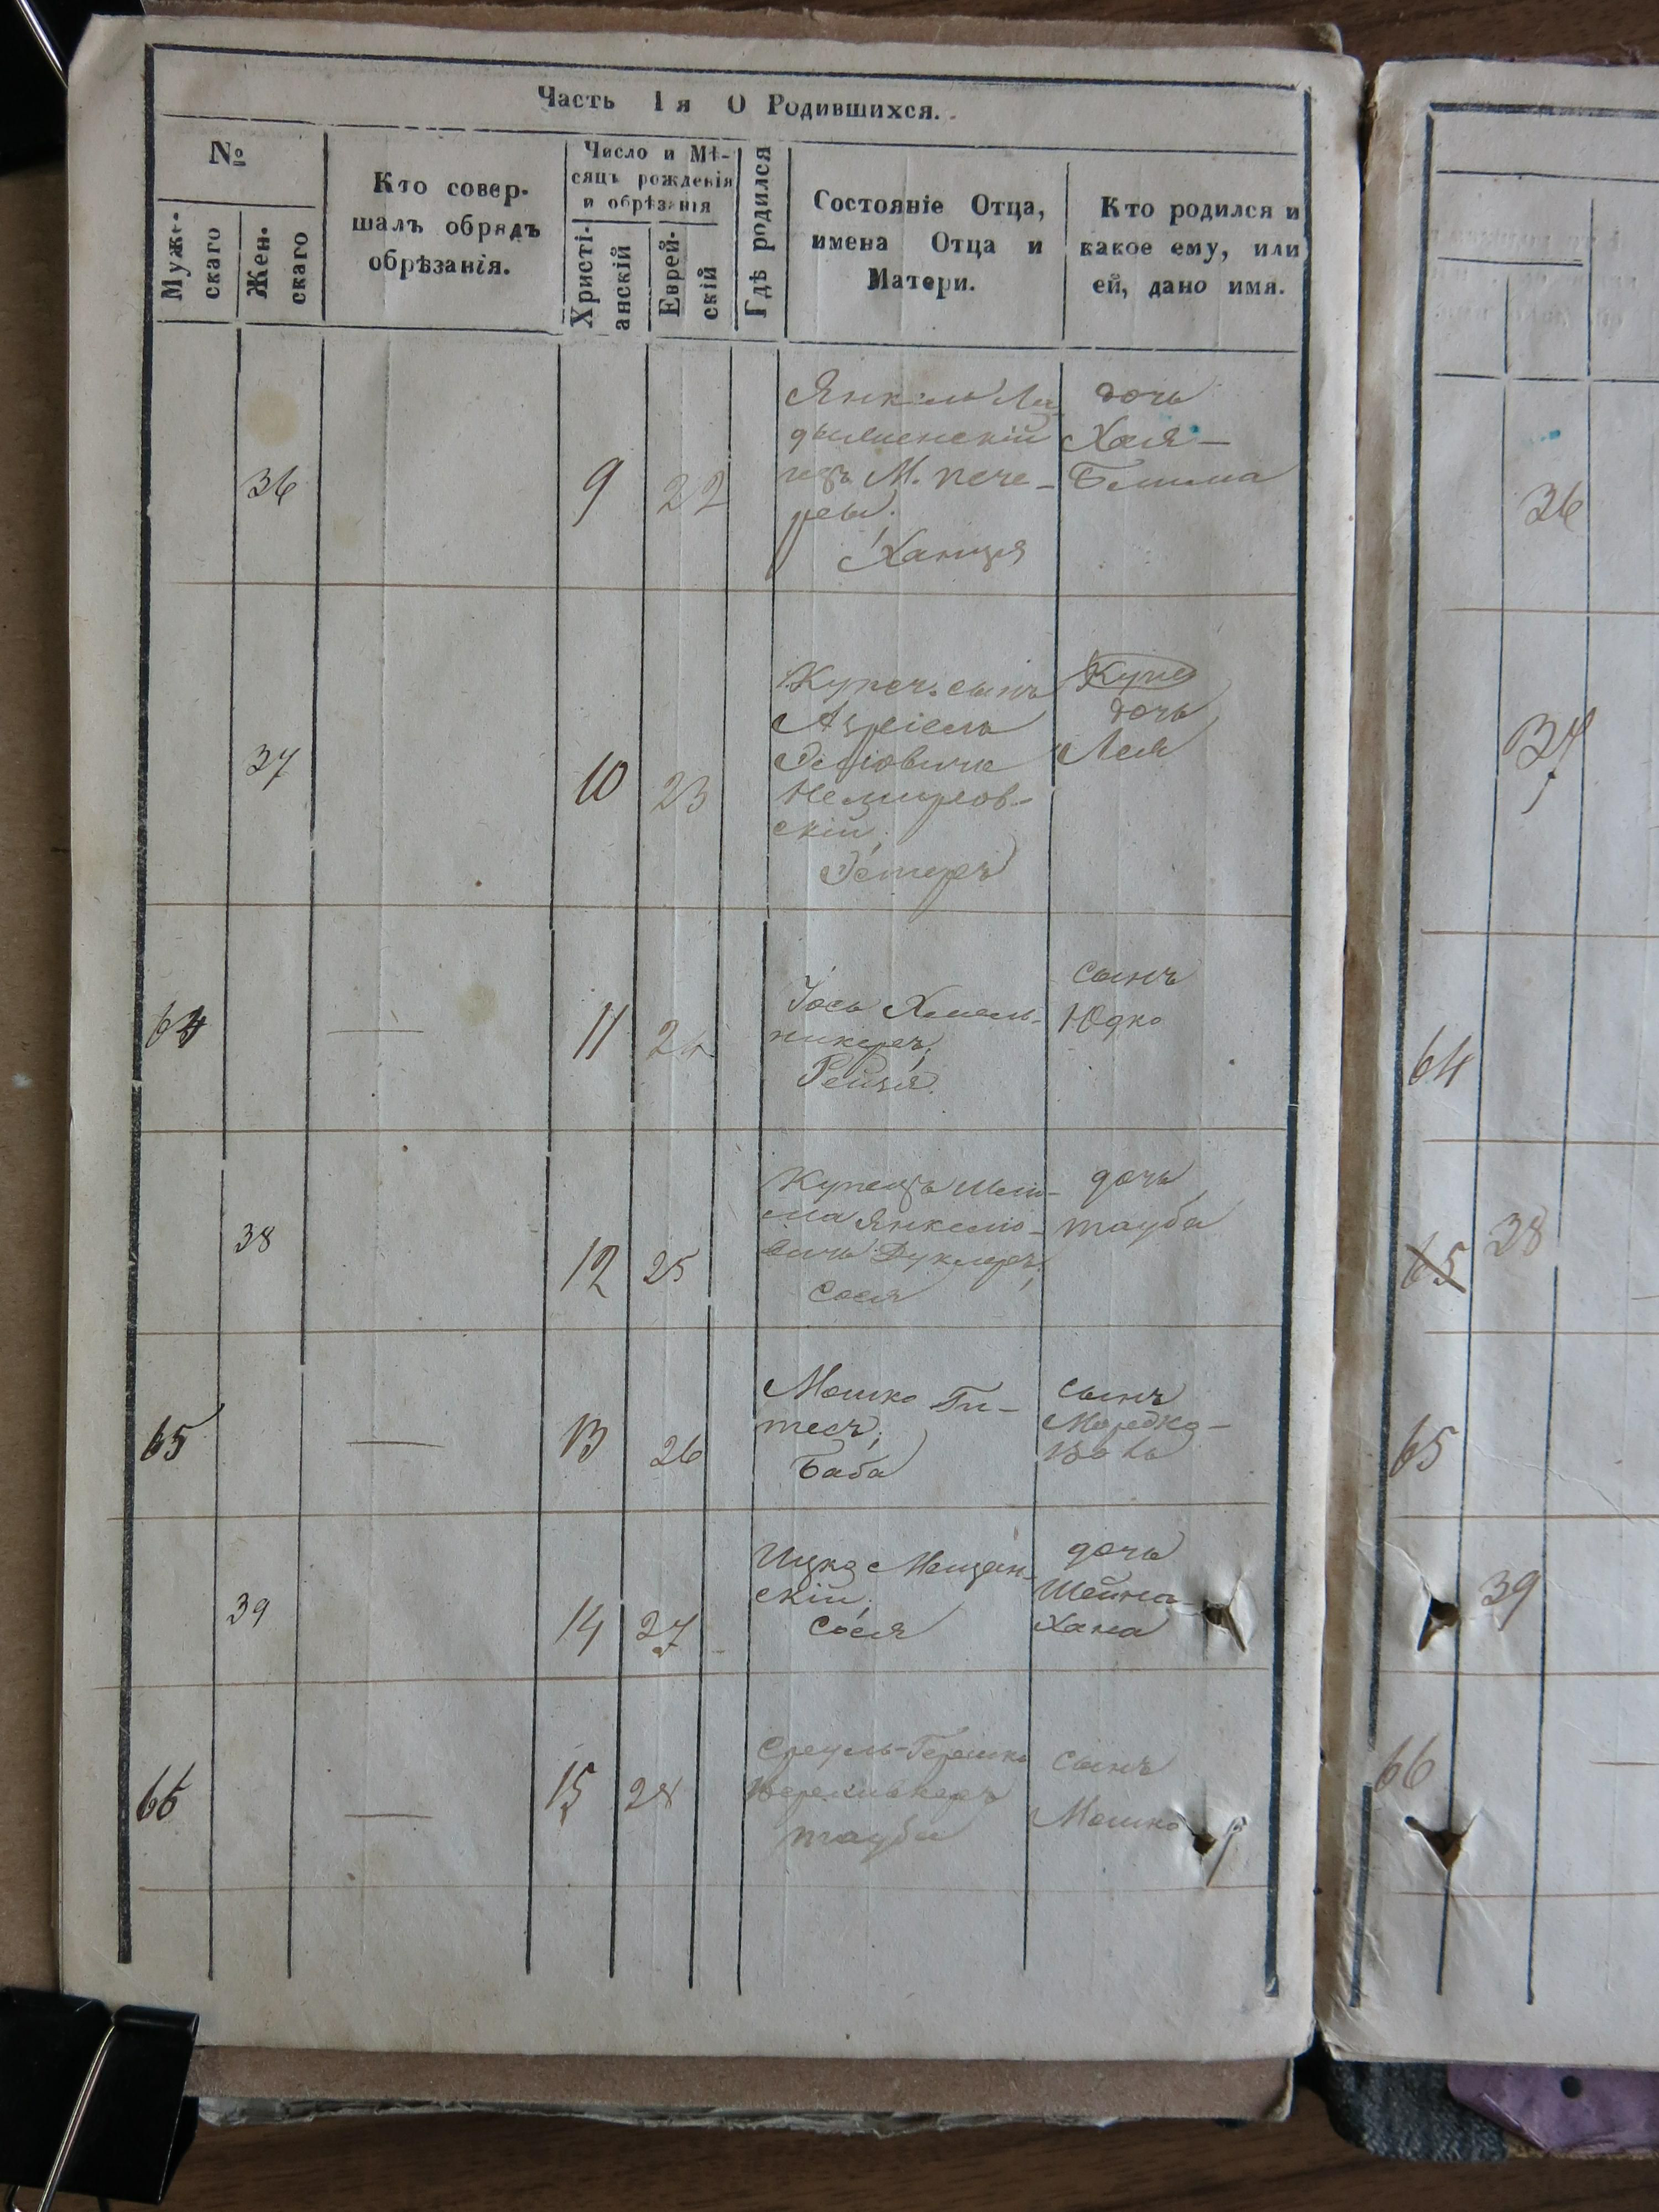 Часть 1я О Родившихся.
№
Муже-
скаго
Жен-
скаго
Кто совер-
шалъ обрядъ
обрѣзанія.
Число и Мѣ-
сяцъ рожденія
и обрѣзанія
Христі-
анскій
Еврей-
скій
Гдѣ родился
Состояніе Отца,
имена Отца и
Матери.
Кто родился и
какое ему, или
ей, дано имя.
36
9
22
Янкель
изъ М. Пече-
ры.
Ханця
дочь
Хая-
37
10
23
Купеч. сынъ
Азріель
Немиров-
скій,
Эстеръ
дочь
Лея
64
11
24
Іось Хмель-
никеръ,
Рейзя.
сынъ
Юдко
38
12
25
Купецъ Шлио-
ма Янкелю-
вичъ Дуклеръ,
Сося
дочь
Тауба
65
—
13
26
Мошко Ги-
тесъ,
Баба
сынъ
Мордко-
Волъ
39
14
27
Ицко Мещан-
скій,
Сося
дочь
Шейна-
Хана
66
—
15
28
Сруль-Гершко
Тауба
сынъ
Мошко
36
37
64
65
38
65
39
66